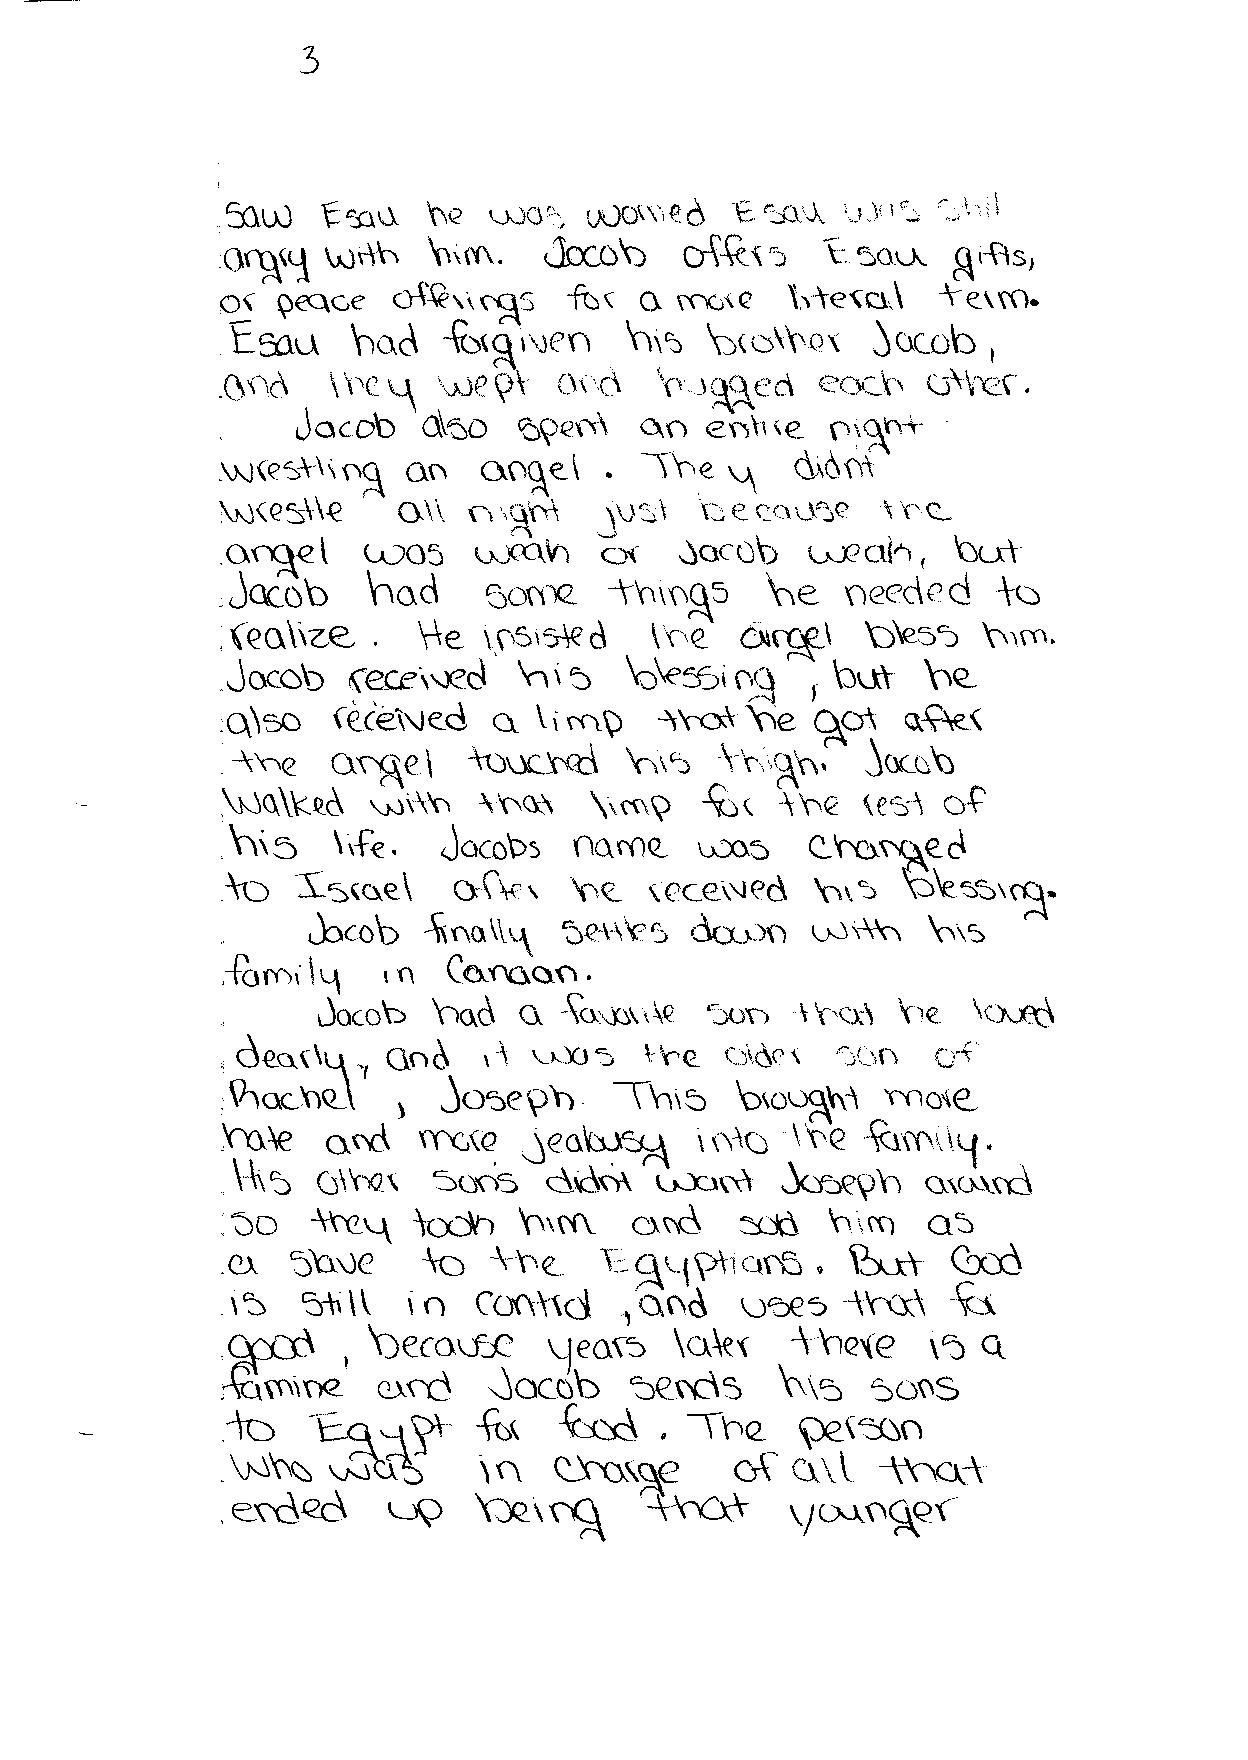 3
saw Esau he was worried Esau was still
angry with him. Jacob offers Esau gifts,
or peace offerings for a more literal term.
Esau had forgiven his brother Jacob,
and they wept and hugged each other.
Jacob also spent an entire night
wrestling an angel. They didnt
wrestle all night just because the
angel was weak or Jacob weak, but
Jacob had some things he needed to
realize. He insisted the angel bless him.
Jacob received his blessing, but he
also received a limp that he got after
the angel touched his thigh. Jacob
walked with that limp for the rest of
his life. Jacobs name was changed
to Israel after he received his blessing.
Jacob finally settles down with his
family in Canaan.
Jacob had a favorite son that he loved
dearly, and it was the older son of
Rachel, Joseph. This brought more
hate and more jealousy into the family.
His other sons didn't want Joseph around
so they took him and sold him as
a slave to the Egyptians. But God
is still in control, and uses that for
good, because years later there is a
famine and Jacob sends his sons
to Egypt for food. The person
who was in charge of all that
ended up being that younger